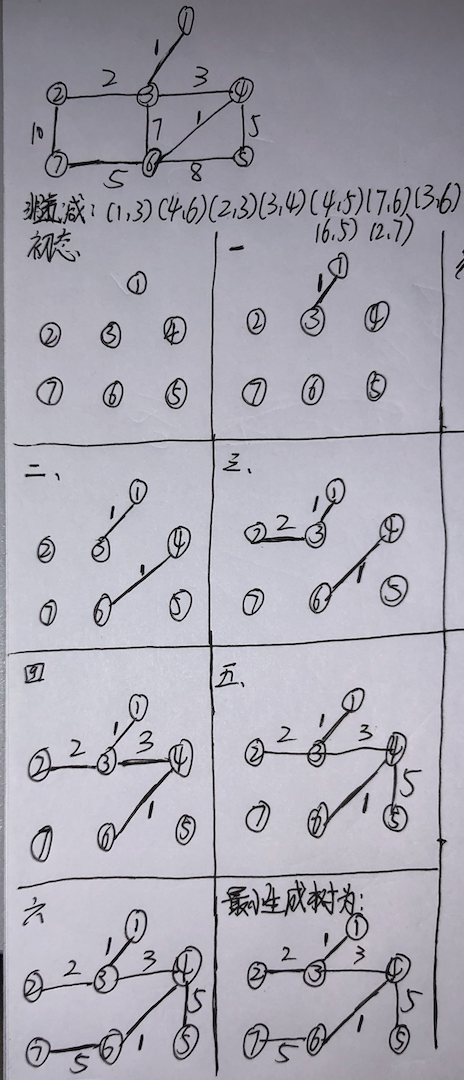 ①
1
2 3
② ③ ④
10 7 1 5
⑦ ⑥ ⑤
5 8
非递减: (1,3) (4,6) (2,3) (3,4) (4,5) (7,6) (3,6)
(6,5) (2,7)
初态
①
② ③ ④
⑦ ⑥ ⑤
一
①
1
② ③ ④
⑦ ⑥ ⑤
二、
①
1
② ③ ④
1
⑦ ⑥ ⑤
三、
①
1
② 2 ③ ④
1
⑦ ⑥ ⑤
四
①
1
② 2 ③ 3 ④
1
⑦ ⑥ ⑤
五、
①
1
② 2 ③ 3 ④
1 5
⑦ ⑥ ⑤
六
①
1
② 2 ③ 3 ④
5
⑦ 5 ⑥ 1 ⑤
最小生成树为:
①
1
② 2 ③ 3 ④
5
⑦ 5 ⑥ 1 ⑤